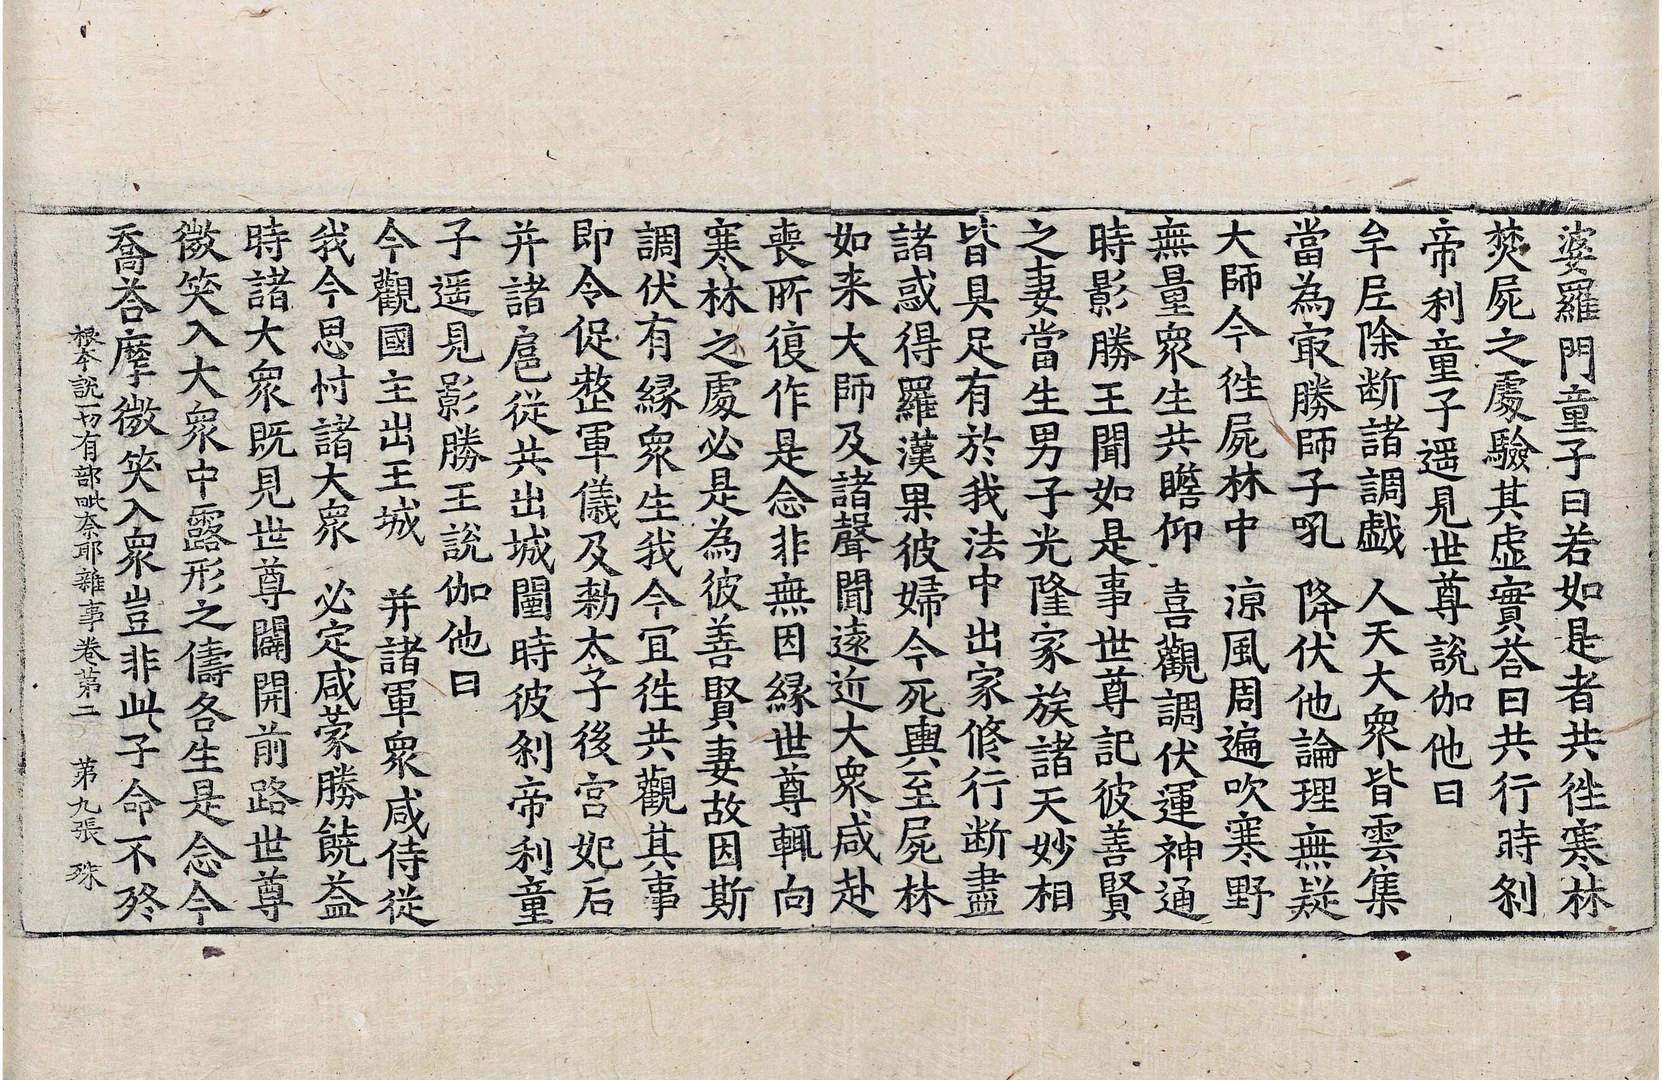 婆羅門童子曰若如是者共徃寒林
焚屍之處驗其虛實荅曰共行時剎
帝利童子遥見世尊說伽他曰
牟尼除断諸調戯　人天大衆皆雲集
當為㝡勝師子吼　降伏他論理無疑
大師今徃屍林中　涼風周遍吹寒野
無量衆生共瞻仰　喜觀調伏運神通
時影勝王聞如是事世尊記彼善賢
之妻當生男子光隆家族諸天妙相
皆具足有於我法中出家修行断盡
諸惑得羅漢果彼婦今死輿至屍林
如来大師及諸聲聞遠近大衆咸赴
喪所復作是念非無因縁世尊輒向
寒林之處必是為彼善賢妻故因斯
調伏有縁衆生我今冝徃共觀其事
即令促整軍儀及勅太子後宮妃后
并諸扈従共出城闉時彼剎帝利童
子遥見影勝王說伽他曰
今觀國主出王城　并諸軍衆咸侍従
我今思忖諸大衆　必定咸蒙勝饒益
時諸大衆既見世尊闢開前路世尊
微笑入大衆中露形之儔各生是念今
喬荅摩微笑入衆豈非此子命不終
根本說一切有部毗奈耶雜事卷第二　第九張　殊